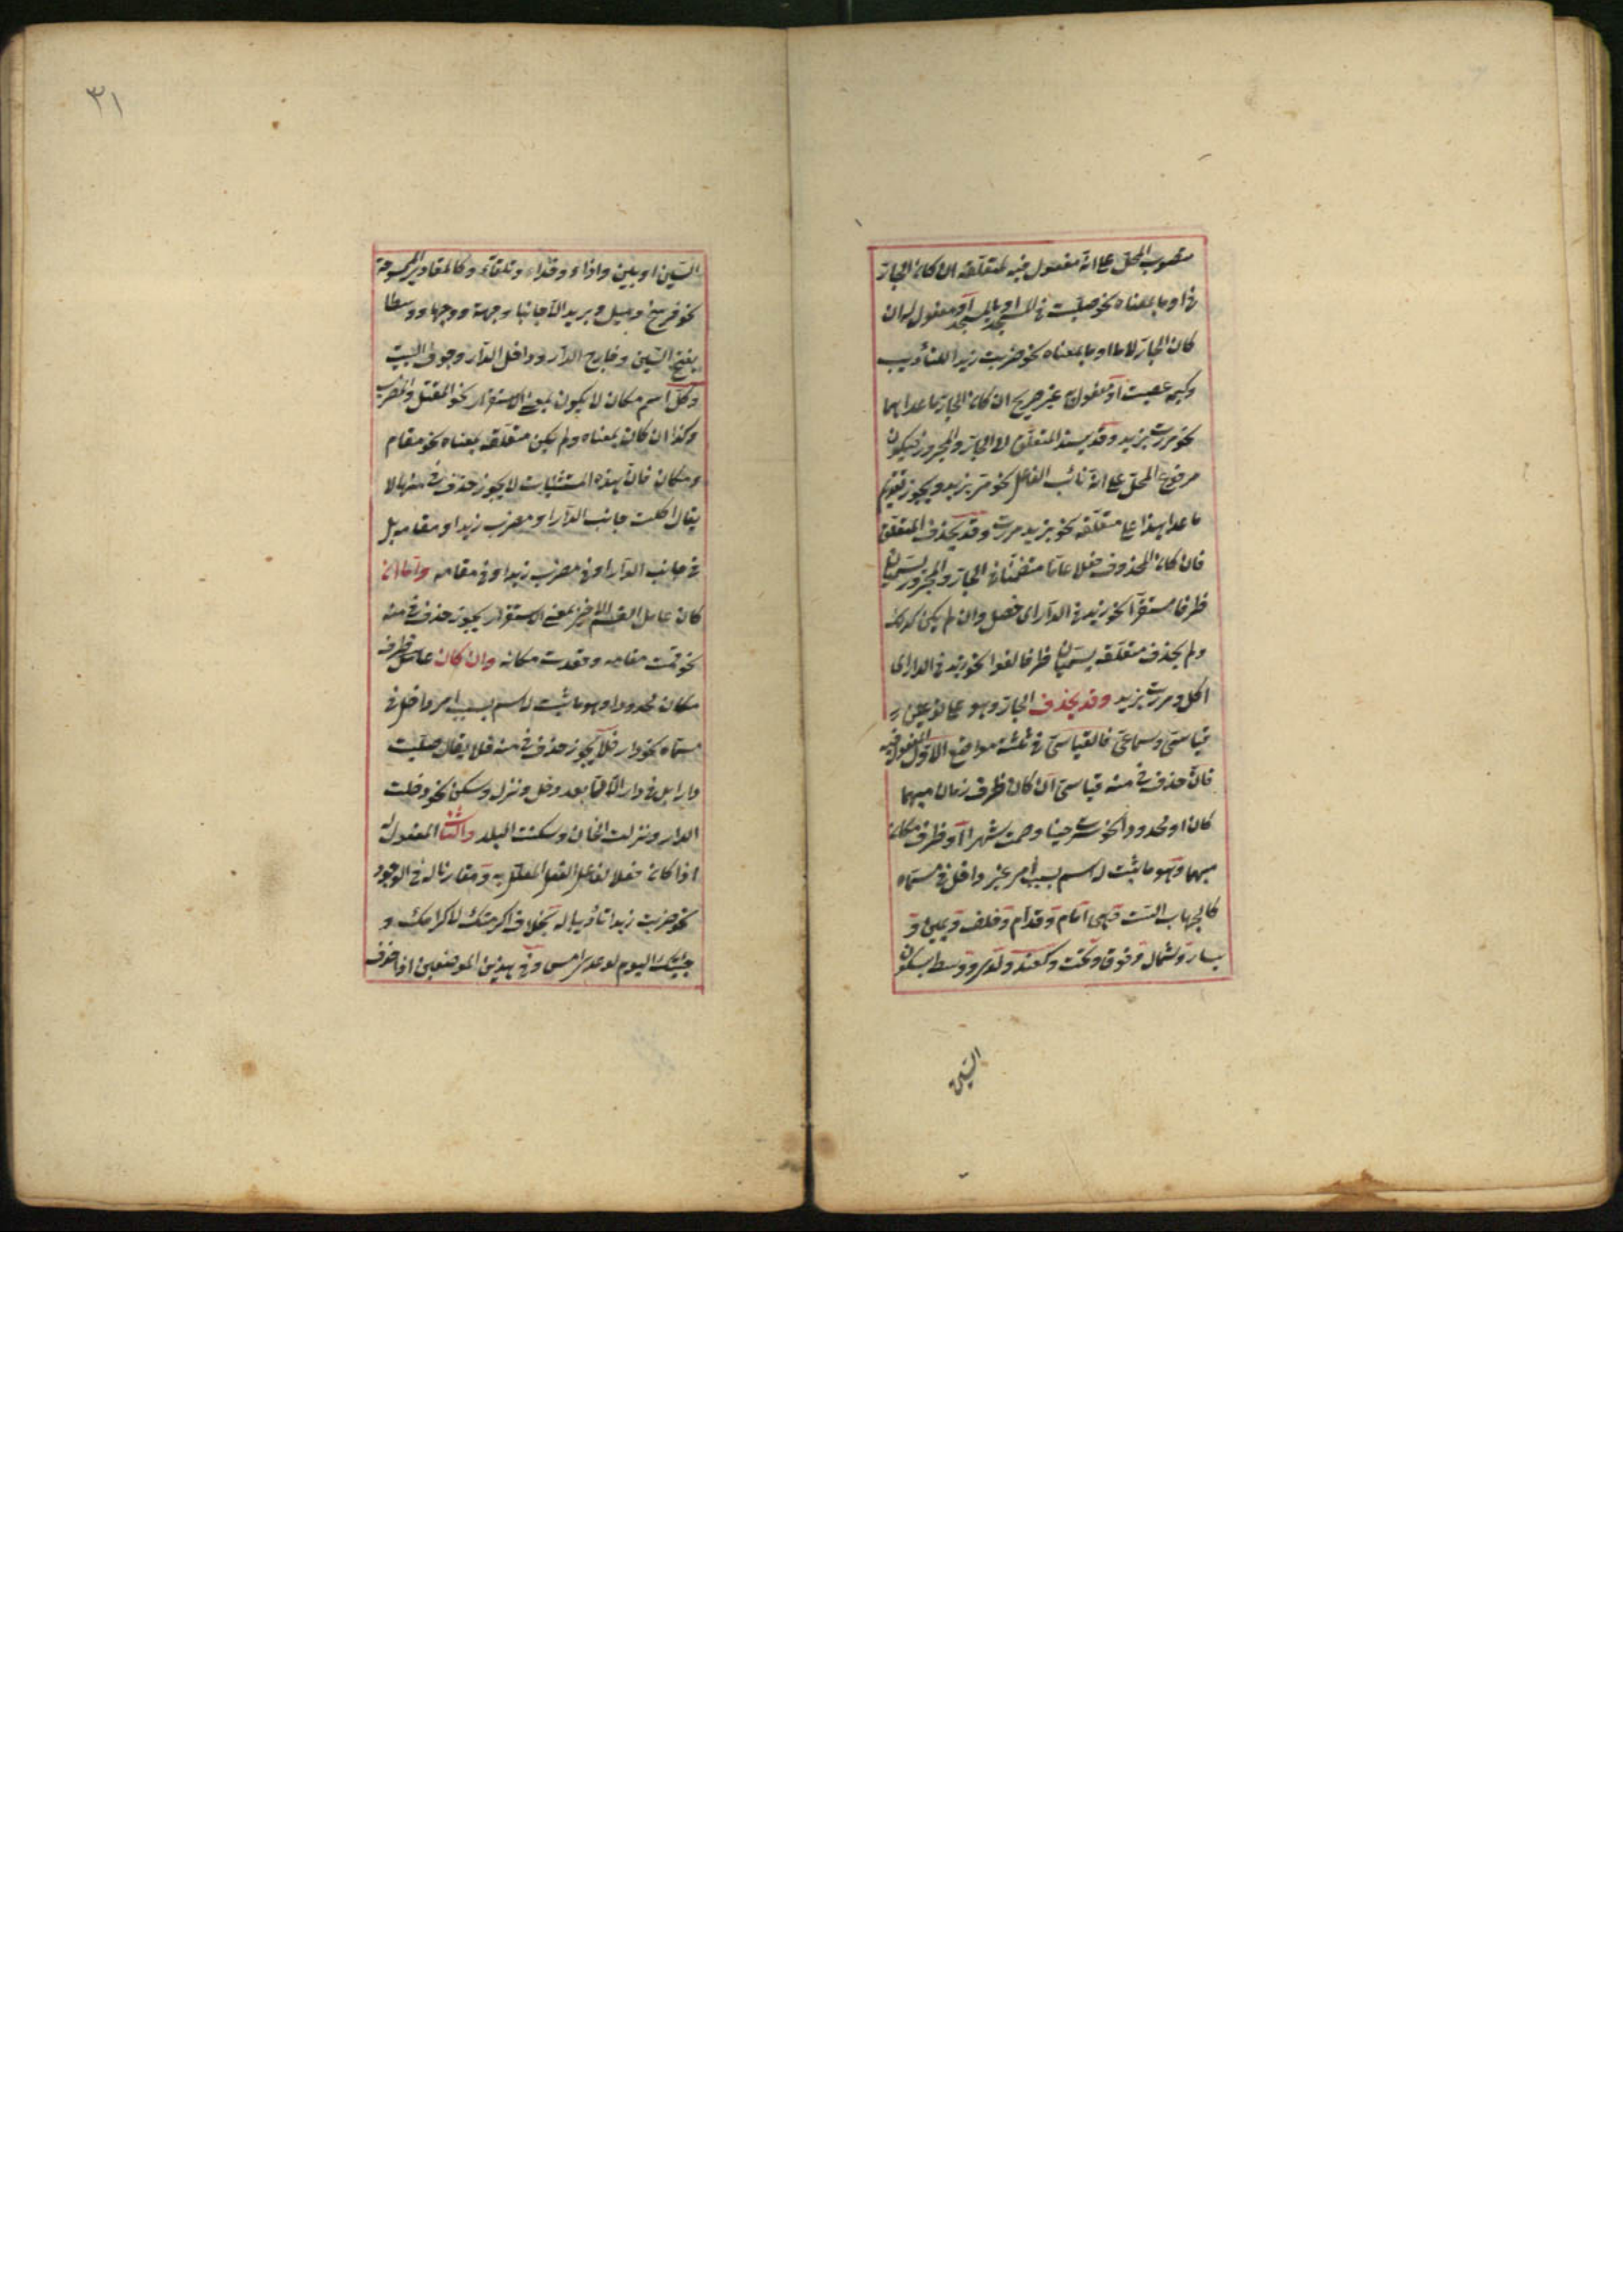 منصوب المحل على انه مفعول فيه لمتعلقه ان كان الجار
فى او ما بمعناه نحو صليت فى المسجد او بالمسجد او مفعول له ان
كان الجار لاما او ما بمعناه نحو ضربت زيدا للتأديب
وكيمه عصيت او مفعول به غير صريح ان كان الجار ما عداهما
نحو مررت بزيد وقد يسند المتعلق الى الجار والمجرور فيكون
مرفوع المحل على انه نائب الفاعل نحو مر بزيد ويجوز تقديم
ما عدا هذا على متعلقه نحو بزيد مررت وقد يحذف المتعلق
فان كان المحذوف فعلا عاما متضمنا فى الجار والمجرور يسميان
ظرفا مستقرا نحو زيد فى الدار اى حصل وان لم يكن كذلك
ولم يحذف متعلقه يسميان ظرفا لغوا نحو زيد فى الدار اى
اكل و مررت بزيد وقد يحذف الجار وهو على نوعين
قياسى وسماعى فالقياسى فى ثلثة مواضع الاول المفعول فيه
فان حذف فى منه قياسى ان كان ظرف زمان مبهما
كان او محدودا نحو سرت حينا وصمت شهرا او ظرف مكان
مبهما وهو ما ثبت له اسم بسبب امر غير داخل فى مسماه
كالجهات الست وهى امام وقدام وخلف ويمين و
يسار وشمال وفوق وتحت وكعند ولدى ووسط بسكون
السين
٣١
السين او بين وازاء وحذاء وتلقاء وكالمقادير الممسوحة
نحو فرسخ وميل وبريد الا جانبا وجهة ووجها ووسطا
بفتح السين وخارج الدار وداخل الدار وجوف البيت
وكل اسم مكان لا يكون بمعنى الاستقرار نحو المقتل والمضرب
وكذا ان كان بمعناه ولم يكن متعلقه بمعناه نحو مقام
ومكان فان هذه المستثنيات لا يجوز حذف فى منها لا
يقال اكلت جانب الدار او مضرب زيد او مقامه بل
فى جانب الدار او فى مضرب زيد او فى مقامه واما ان
كان عامل القسم الاخير بمعنى الاستقرار يجوز حذف فى منه
نحو قمت مقامه وقعدت مكانه وان كان عامل ظرف
مكان محدودا وهو ما ثبت له اسم بسبب امر داخل فى
مسماه نحو دار فلا يجوز حذف فى منه فلا يقال صليت
دارا بل فى دار الا فيما بعد دخل ونزل وسكن نحو دخلت
الدار ونزلت الخان وسكنت البلد والثانى المفعول له
اذا كان فعلا لفاعل الفعل المعلل به ومقارنا له فى الوجود
نحو ضربت زيدا تأديبا له بخلاف اكرمتك لاكرامك و
جئتك اليوم لوعدى امس وفى هذين الموضعين اذا حذف